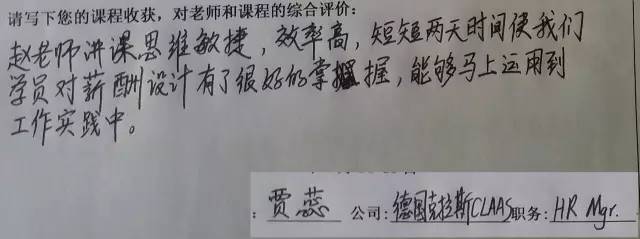 请写下您的课程收获，对老师和课程的综合评价：
赵老师讲课思维敏捷，效率高，短短两天时间使我们
学员对薪酬设计有了很好的掌握，能够马上运用到
工作实践中。
：贾蕊 公司：德国克拉斯CLAAS职务：HR Mgr.